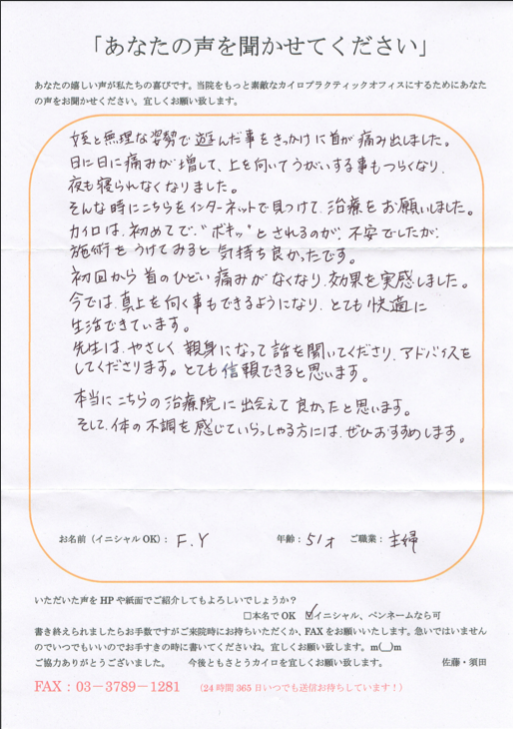 「あなたの声を聞かせてください」
あなたの嬉しい声が私たちの喜びです。当院をもっと素敵なカイロプラクティックオフィスにするためにあなた
の声をお聞かせください。宜しくお願い致します。
姪と無理な姿勢で遊んだ事をきっかけに首が痛み出しました。
日に日に痛みが増して、上を向いてうがいする事もつらくなり、
夜も寝られなくなりました。
そんな時にこちらをインターネットで見つけて、治療をお願いしました。
カイロは、初めてで、"ボキッ"とされるのが、不安でしたが、
施術をうけてみると気持ち良かったです。
初回から首のひどい痛みがなくなり、効果を実感しました。
今では、真上を向く事もできるようになり、とても快適に
生活できています。
先生は、やさしく親身になって話を聞いてくださり、アドバイスを
してくださります。とても信頼できると思います。
本当にこちらの治療院に出会えて良かったと思います。
そして、体の不調を感じていらっしゃる方には、ぜひおすすめします。
お名前（イニシャルOK）： F.Y 年齢： 51才 ご職業： 主婦
いただいた声をHPや紙面でご紹介してもよろしいでしょうか？
□本名でOK ☑イニシャル、ペンネームなら可
書き終えられましたらお手数ですがご来院時にお持ちいただくか、FAXをお願いいたします。急いではいません
のでいつでもいいのでお手すきの時に書いてくださいね。宜しくお願い致します。m(__)m
ご協力ありがとうございました。 今後ともさとうカイロを宜しくお願い致します。 佐藤・須田
FAX：03－3789－1281 （24時間365日いつでも送信お待ちしています！）